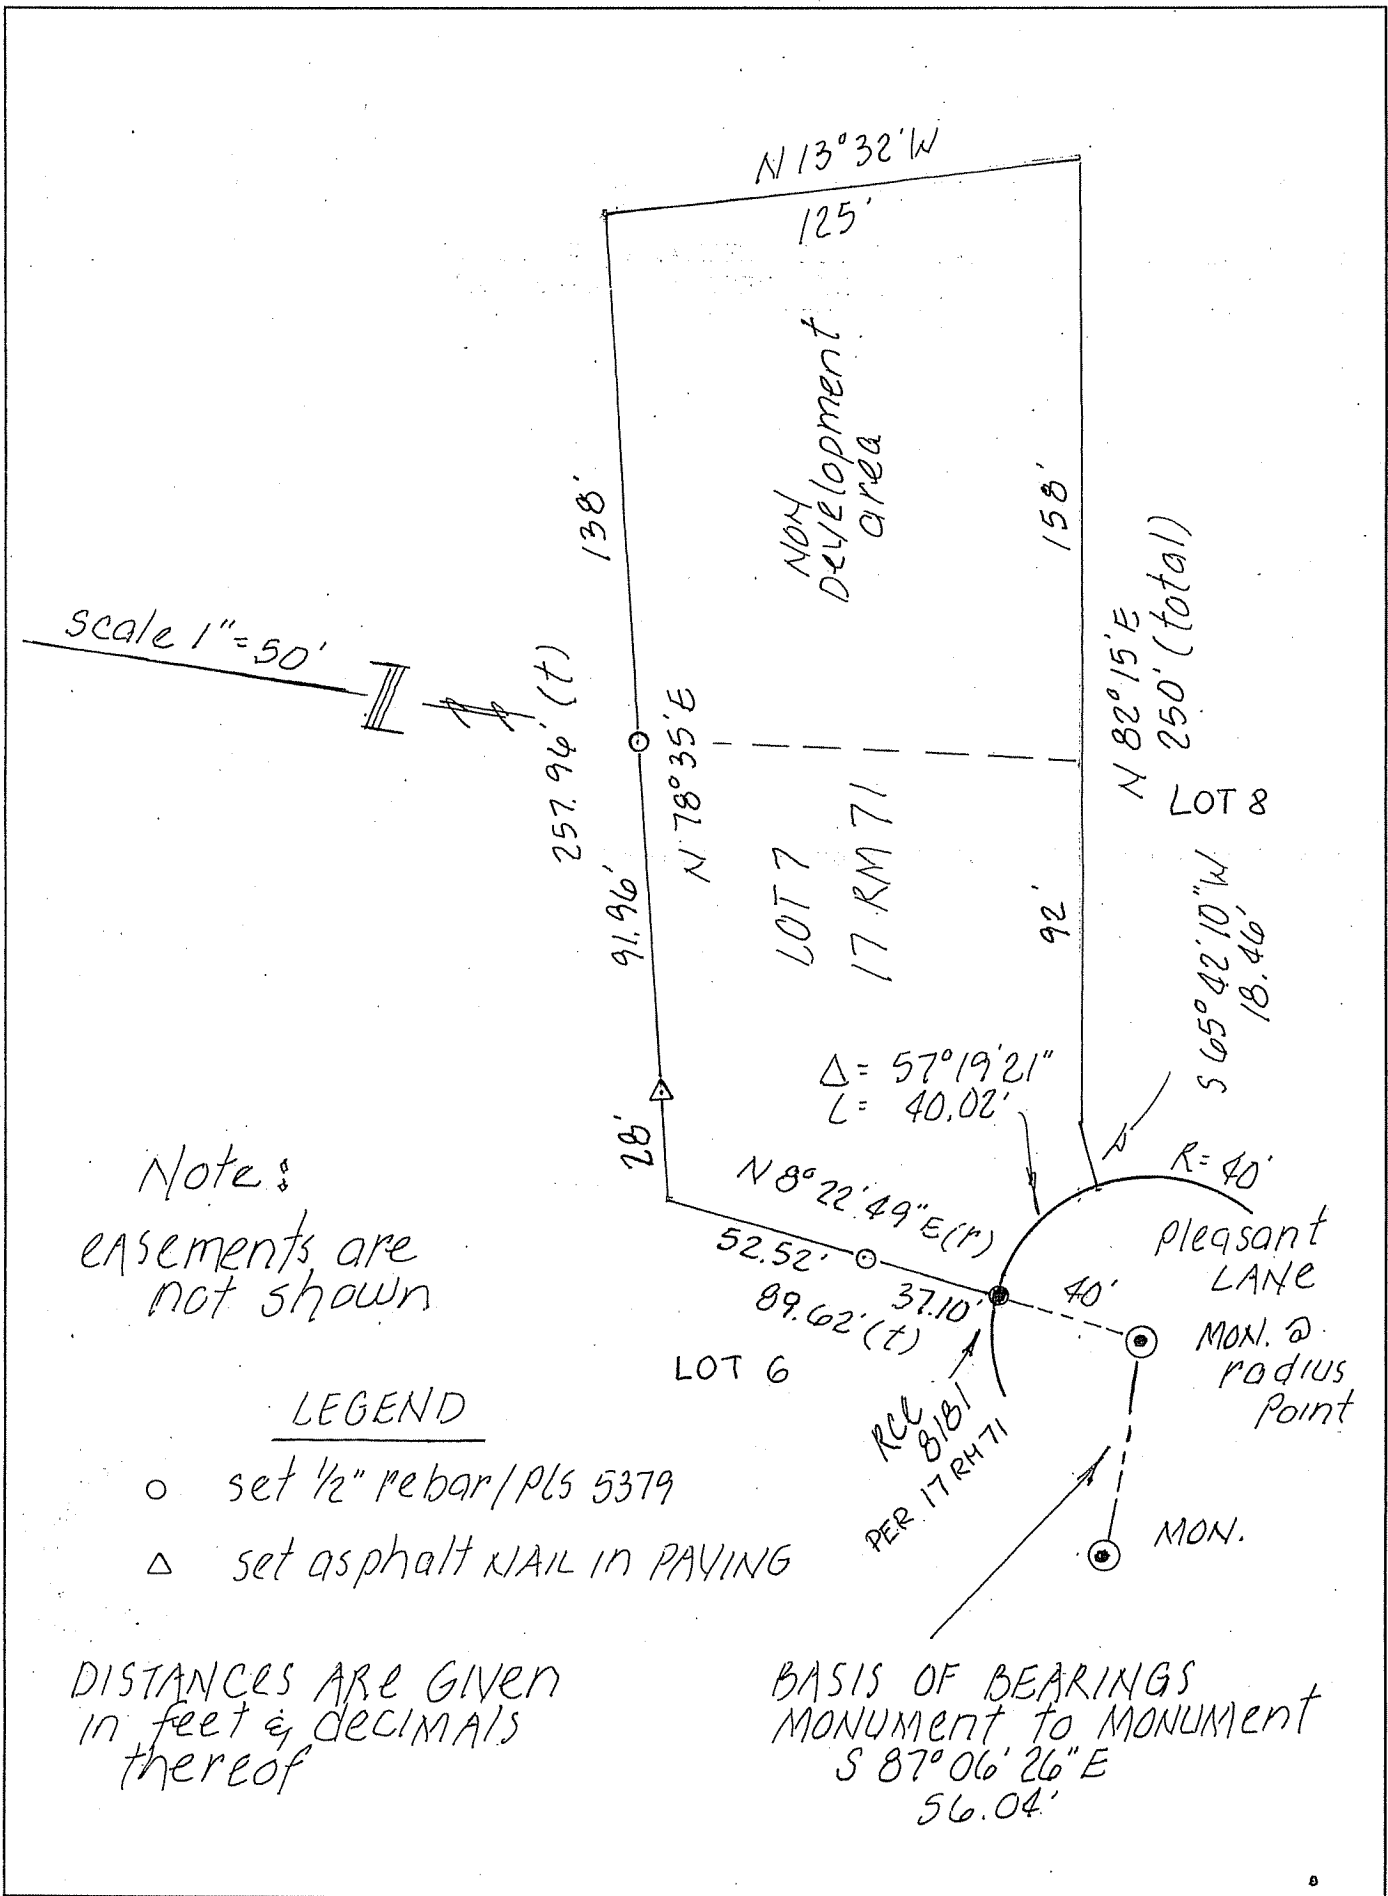 N 13°32'W
125'
NON
Development
area
138'
158'
scale 1"=50'
257.96' (t)
N 78°35'E
N 82°15'E
250' (total)
LOT 8
LOT 7
17 RM 71
91.96'
92'
S 65°42'10"W
18.46'
Δ= 57°19'21"
L= 40.02'
28'
Note:
easements are
not shown
N 8°22'49"E(r)
R= 40'
52.52'
37.10'
89.62' (t)
40'
Pleasant
LANe
MON. @
radius
Point
LOT 6
RCE
8181
PER 17 RM 71
MON.
LEGEND
set 1/2" rebar/PLS 5379
set asphalt NAIL in PAVING
DISTANCES ARe GIVen
in feet & decIMAls
thereof
BASIS OF BEARINGS
MONUMent to MONUMent
S 87°06'26"E
56.04'